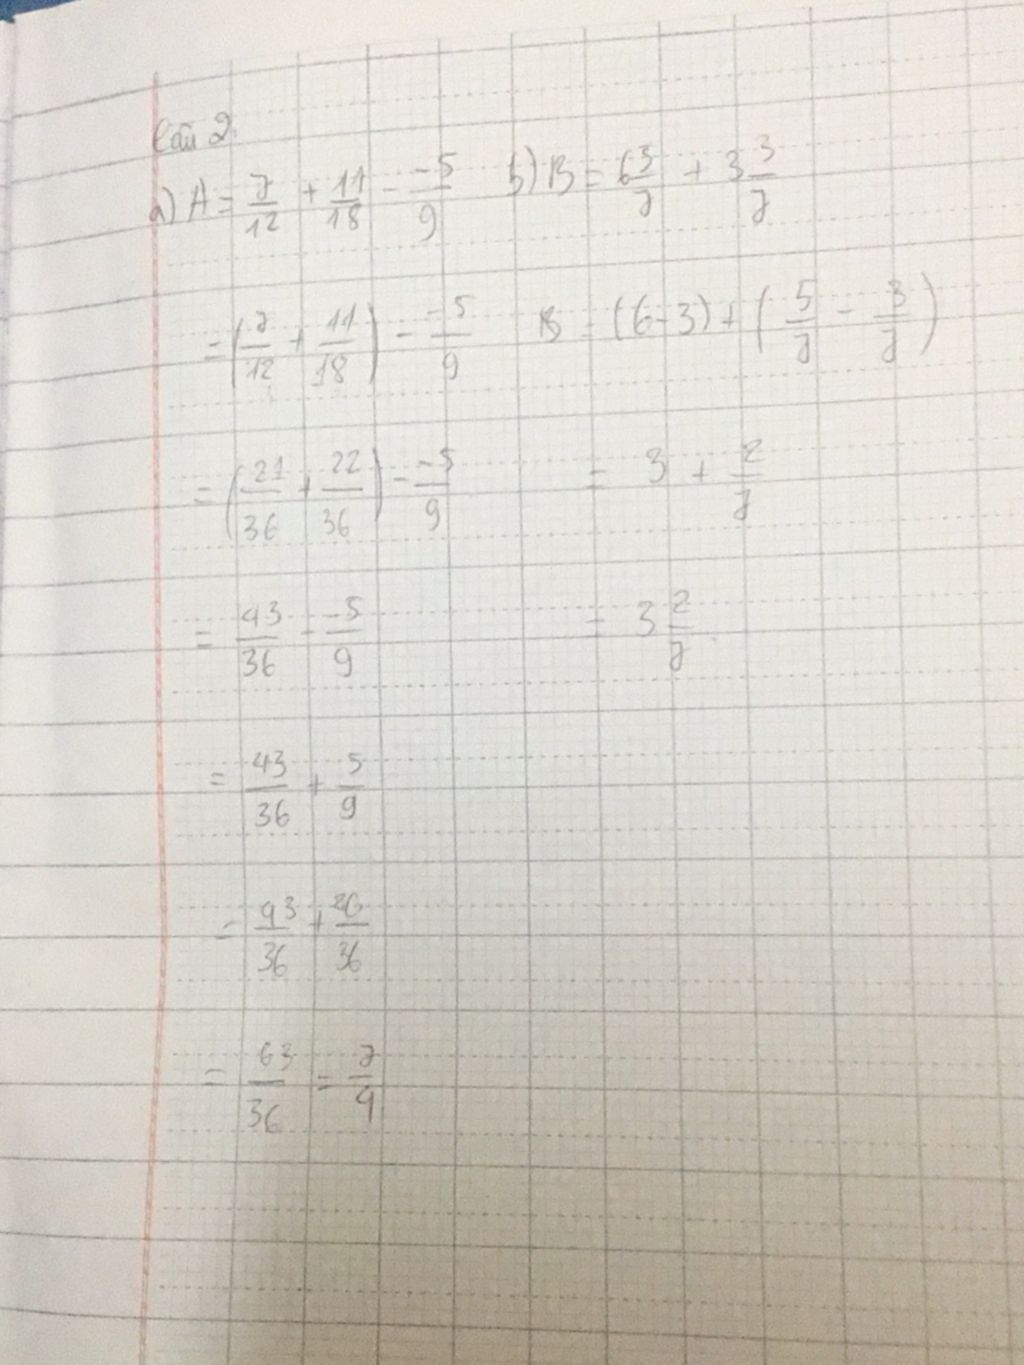 Câu 2.
a) A = 7/12 + 11/18 - -5/9
= (7/12 + 11/18) - -5/9
= (21/36 + 22/36) - -5/9
= 43/36 - -5/9
= 43/36 + 5/9
= 43/36 + 20/36
= 63/36 = 7/4
b) B = 6 3/7 + 3 3/7
B = (6-3) + (5/7 - 3/7)
= 3 + 2/7
= 3 2/7